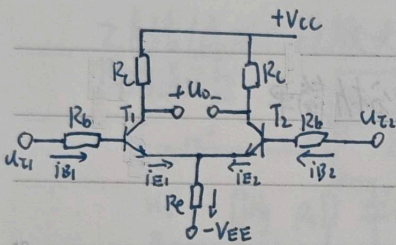 +Vcc
Rc
Rc
+ uo -
T1
T2
Rb
Rb
uI1
uI2
iB1
iE1
iE2
iB2
Re
-VEE